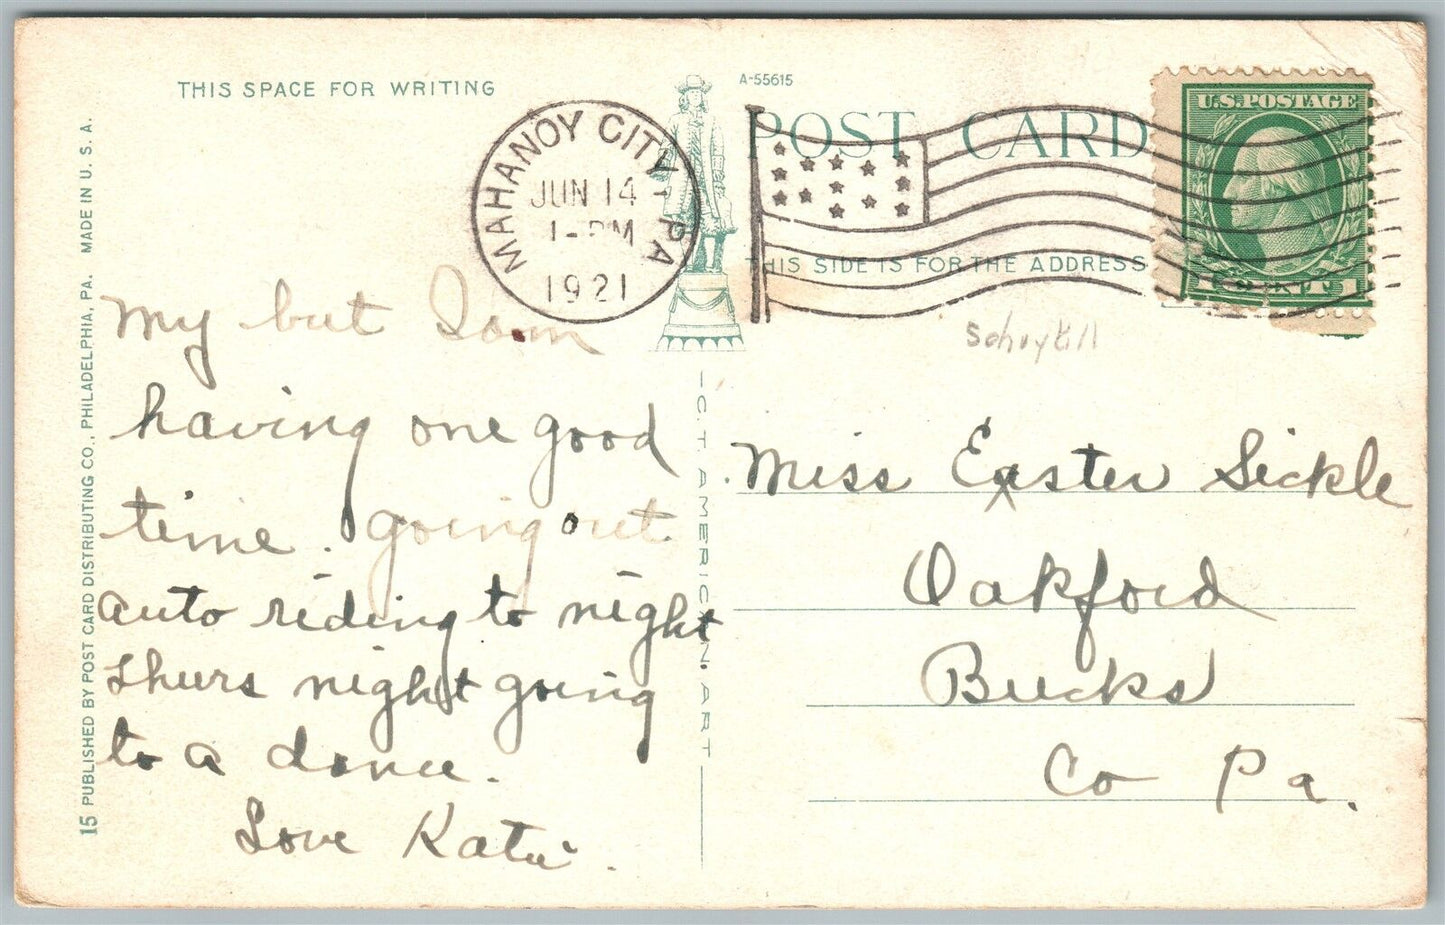 THIS SPACE FOR WRITING
A-55615
POST CARD
THIS SIDE IS FOR THE ADDRESS
MAHANOY CITY PA
JUN 14
1-PM
1921
U.S. POSTAGE
1 CENT 1
Schuykill
My but I am
having one good
time. going out
auto riding to night
Thurs night going
to a dance.
Love Katie.
Miss Easter Sickle
Oakford
Bucks
Co Pa.
15 PUBLISHED BY POST CARD DISTRIBUTING CO., PHILADELPHIA, PA. MADE IN U.S.A.
C.T. AMERICAN ART